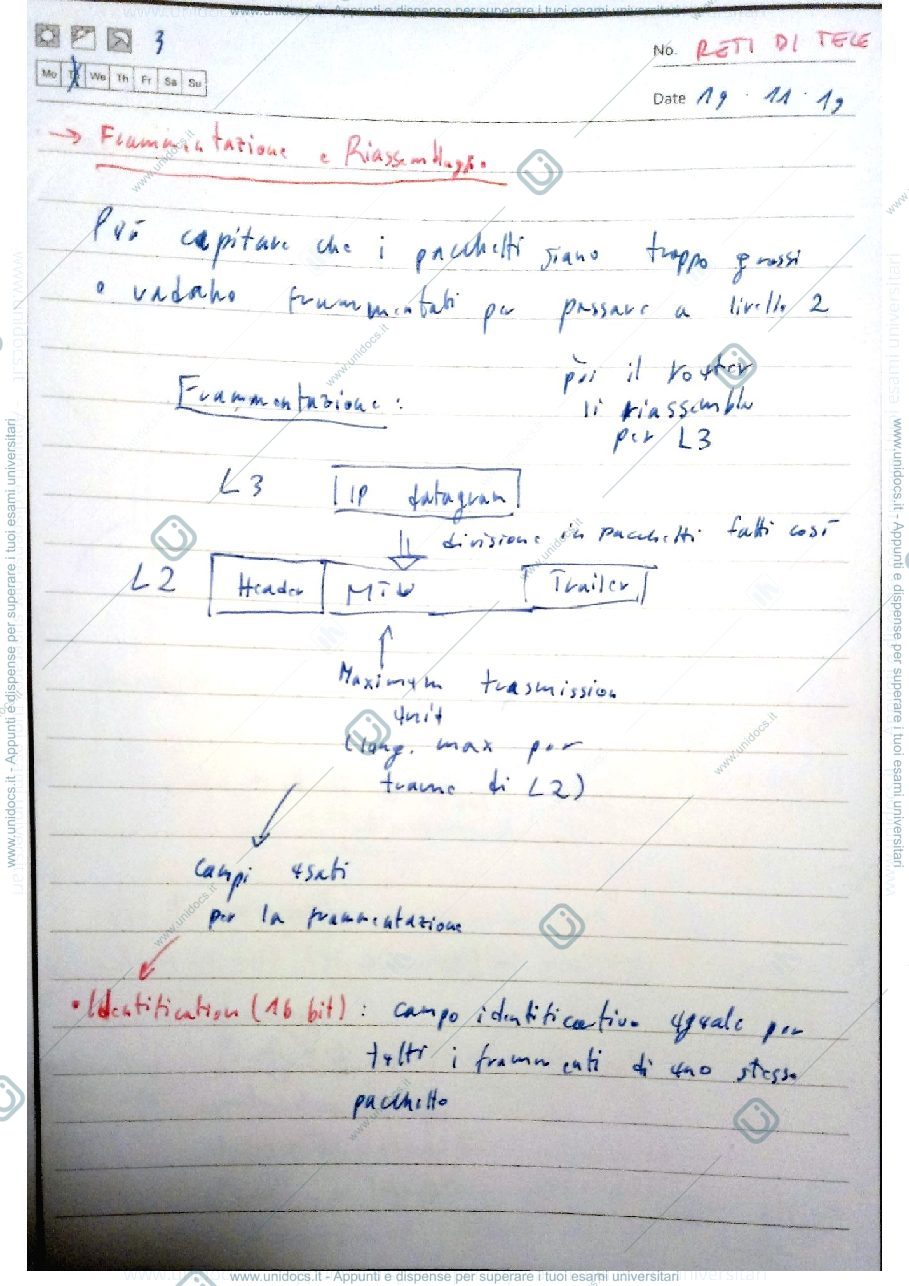 www.unidocs.it - Appunti e dispense per superare i tuoi esami universitari
3
No. RETI DI TELE
Mo Tu We Th Fr Sa Su
Date 19 . 11 . 19
→ Frammentazione e Riassemblaggio
Può capitare che i pacchetti siano troppo grossi
o vadano frammentati per passare a livello 2
poi il router
li riassembla
per L3
Frammentazione:
L3 IP datagram
divisione in pacchetti fatti così
L2 Header MTU Trailer
Maximum trasmission
unit
(lung. max per
trame di L2)
campi usati
per la frammentazione
• Identification (16 bit): campo identificativo uguale per
tutti i frammenti di uno stesso
pacchetto
www.unidocs.it - Appunti e dispense per superare i tuoi esami universitari